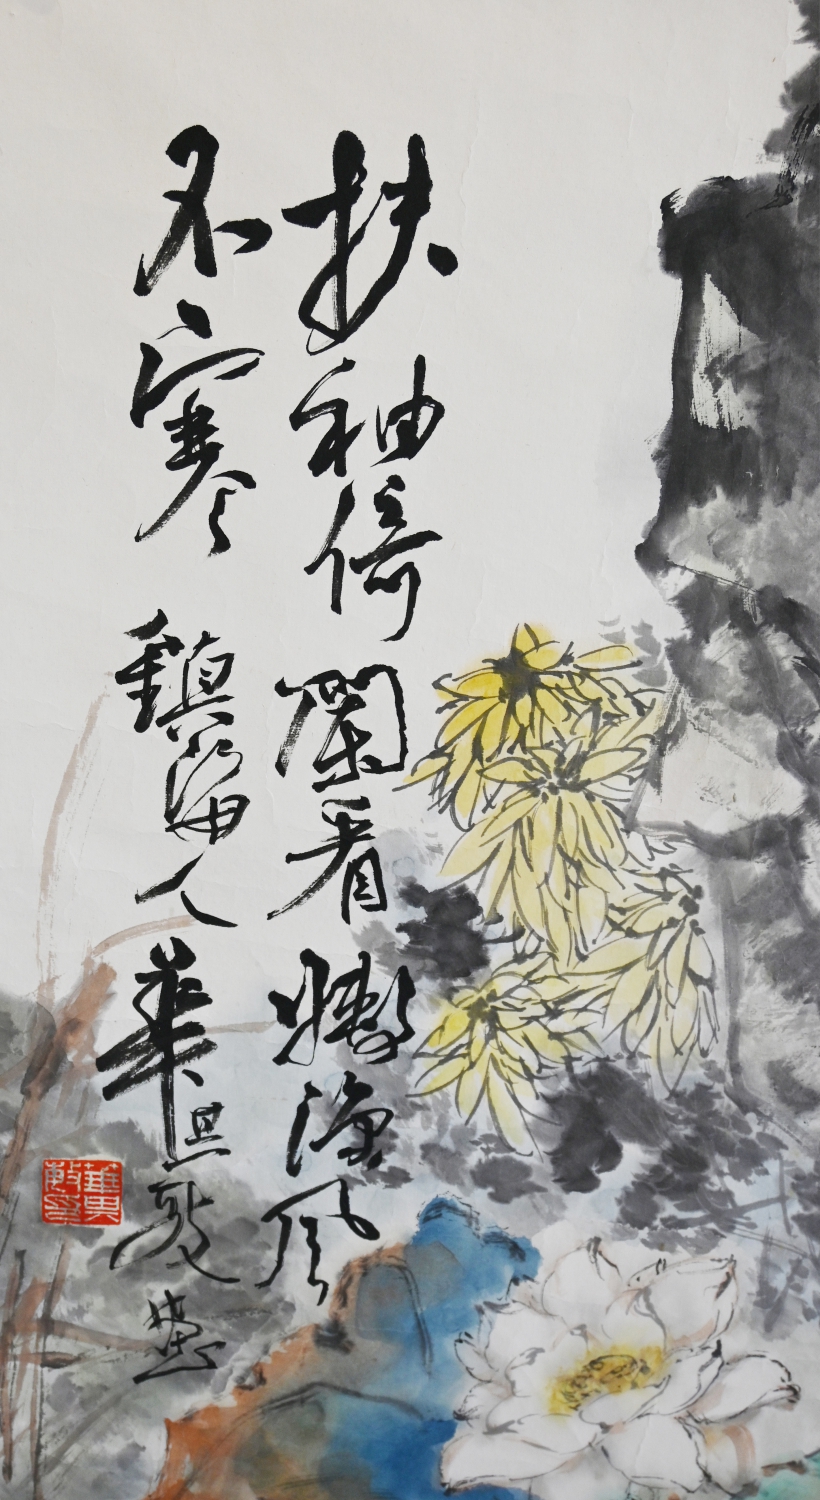 扶袖倚闌看嫩涼风
不寒 鎮海人華其敏畫
華其敏印